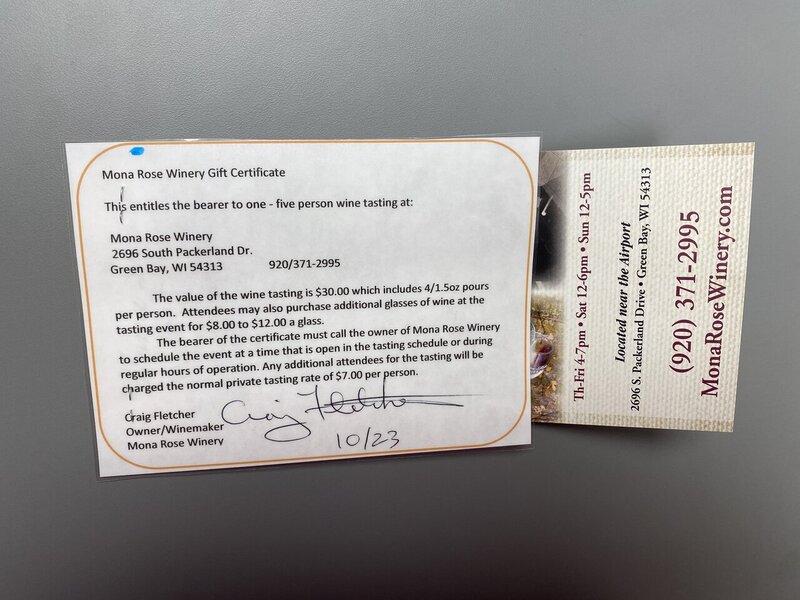 Mona Rose Winery Gift Certificate
This entitles the bearer to one - five person wine tasting at:
Mona Rose Winery
2696 South Packerland Dr.
Green Bay, WI 54313 920/371-2995
The value of the wine tasting is $30.00 which includes 4/1.5oz pours
per person. Attendees may also purchase additional glasses of wine at the
tasting event for $8.00 to $12.00 a glass.
The bearer of the certificate must call the owner of Mona Rose Winery
to schedule the event at a time that is open in the tasting schedule or during
regular hours of operation. Any additional attendees for the tasting will be
charged the normal private tasting rate of $7.00 per person.
Craig Fletcher
Craig Fletcher
Owner/Winemaker
Mona Rose Winery
10/23
Th-Fri 4-7pm • Sat 12-6pm • Sun 12-5pm
Located near the Airport
2696 S. Packerland Drive • Green Bay, WI 54313
(920) 371-2995
MonaRoseWinery.com